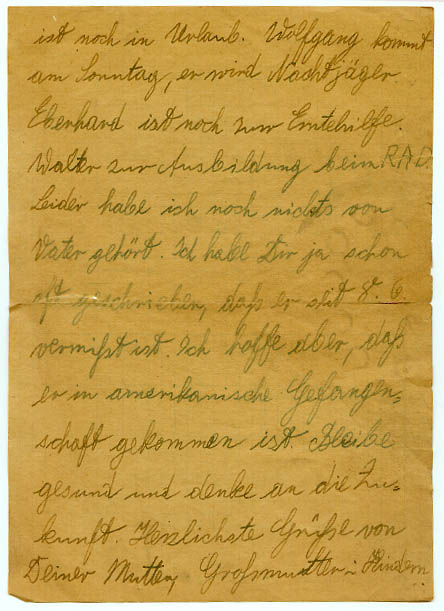 ist noch in Urlaub. Wolfgang kommt
am Sonntag, er wird Nachtjäger.
Eberhard ist noch zur Erntehilfe.
Walter zur Ausbildung beim R.A.D.
Leider habe ich noch nichts von
Vater gehört. Ich habe Dir ja schon
oft geschrieben, daß er seit 8. 6.
vermißt ist. Ich hoffe aber, daß
er in amerikanische Gefangen=
schaft gekommen ist. Bleibe
gesund und denke an die Zu=
kunft. Herzlichste Grüße von
Deiner Mutter, Großmutter